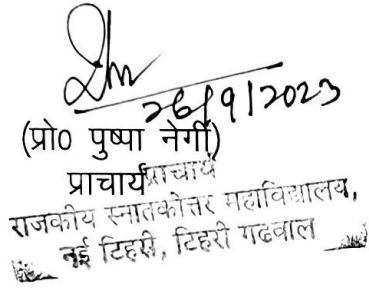 26/9/2023
(प्रो० पुष्पा नेगी)
प्राचार्य
प्राचार्य
राजकीय स्नातकोत्तर महाविद्यालय,
नई टिहरी, टिहरी गढवाल